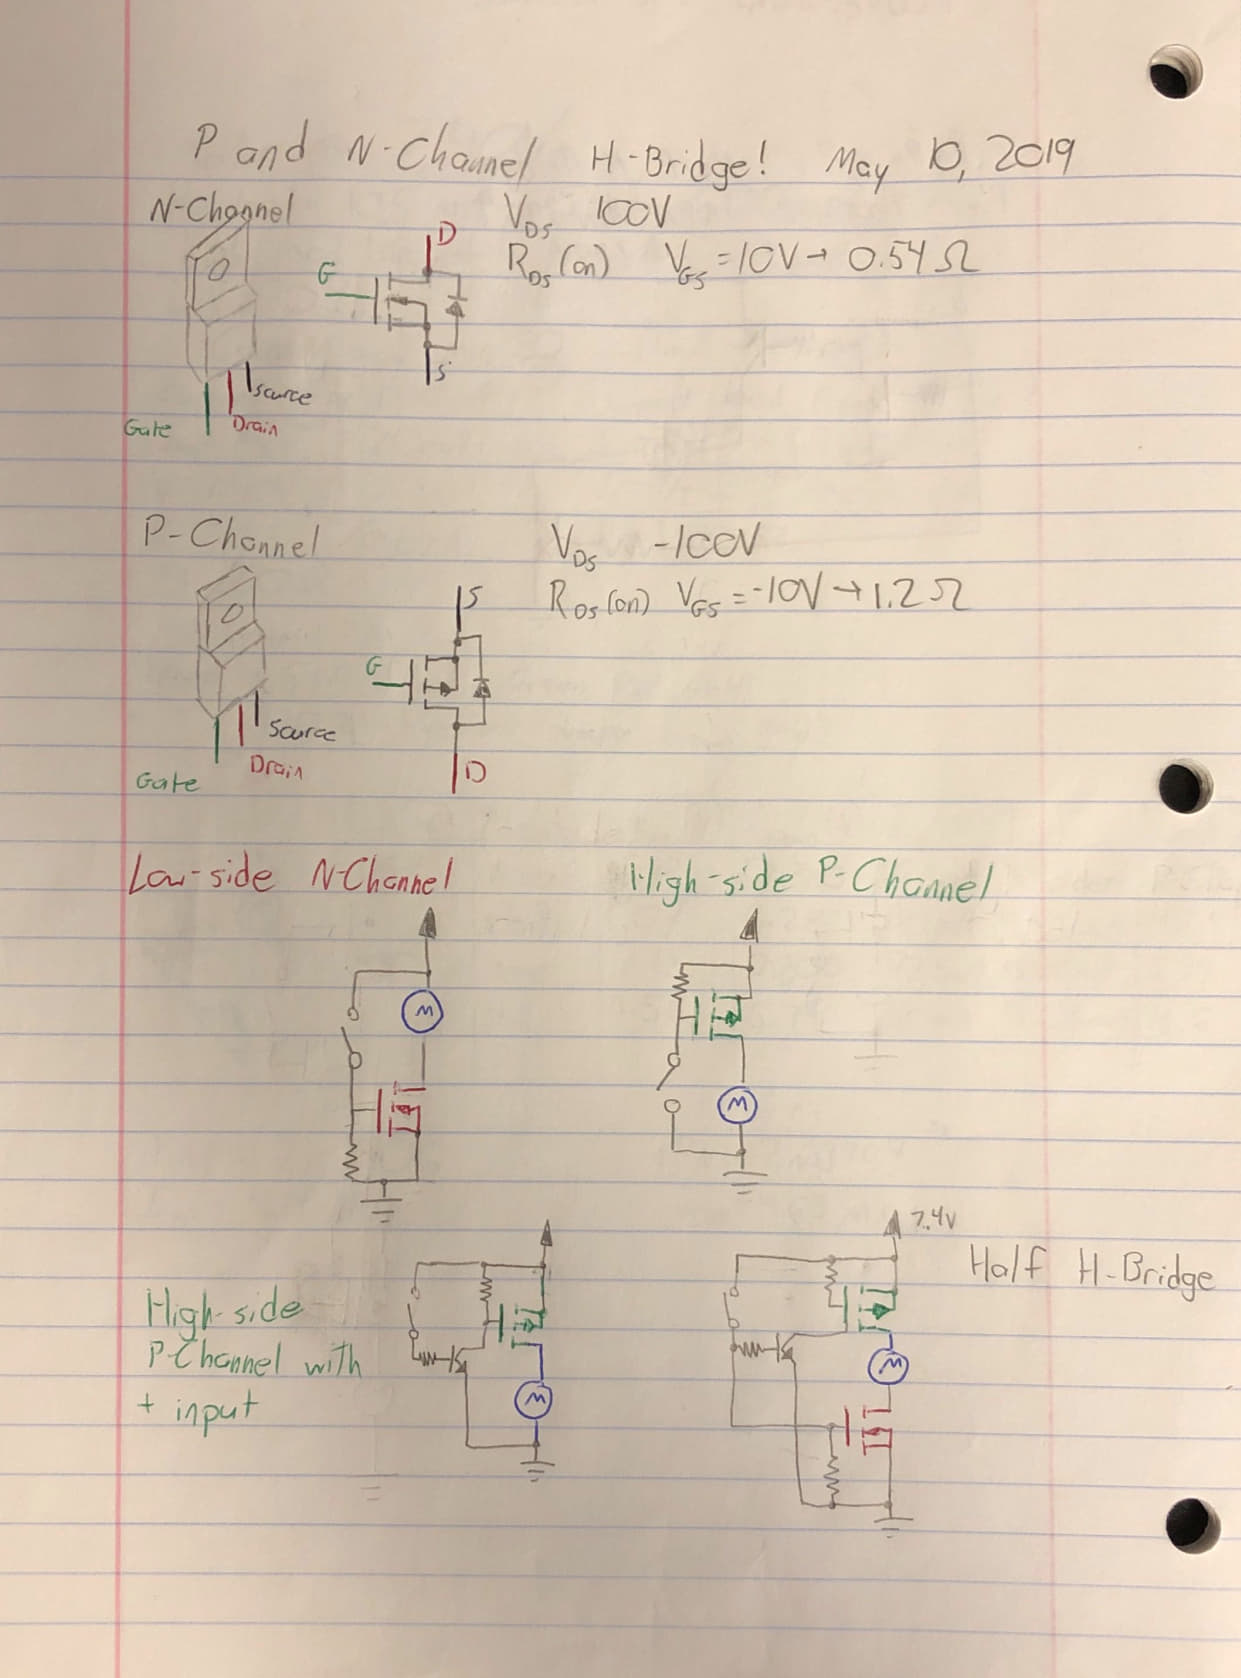 P and N-Channel H-Bridge! May 10, 2019
N-Channel
V_DS 100V
R_DS (on) V_GS = 10V → 0.54 Ω
D
G
S
Source
Gate
Drain
P-Channel
V_DS -100V
R_DS (on) V_GS = -10V → 1.2 Ω
S
G
D
Source
Drain
Gate
Low-side N-Channel
High-side P-Channel
M
M
7.4V
Half H-Bridge
High-side
P-Channel with
+ input
M
M